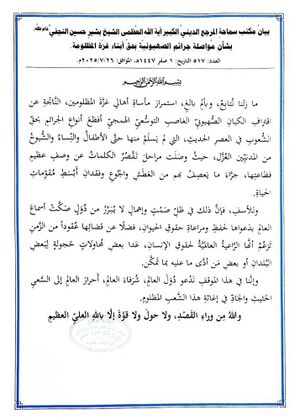 بيان مكتب سماحة المرجع الديني الكبير آية الله العظمى الشيخ بشير حسين النجفي
بشأن مواصلة جرائم الصهيونية بحق أبناء غزة المظلومة.
العدد: ٥١٧ التاريخ: ١ صفر ١٤٤٧هـ الموافق: ٢٠٢٥/٧/٢٦م
بسم الله الرحمن الرحيم
ما زلنا نُتابع، وبألمٍ بالغٍ، استمرار مأساة أهالي غزّة المظلومين، النَّاتجة عن
اقتراف الكيان الصُّهيونيّ الغاصب التوسُّعيّ الهمجيّ أفظعَ أنواع الجرائم بحق
الشُّعوب في العصر الحديث، التي لم يَسلَم منها حتَّى الأطفالُ والنِّساءُ والشُّيوخُ
من المدنيّين العُزَّل، حيثُ وصلَت مراحل تَقصُرُ الكلماتُ عن وصفِ عظيمِ
فظاعتِها، جرَّاءَ ما يَعصِفُ بهم من العَطَشِ والجُوعِ وفقدانِ أبسطِ مُقوِّماتِ
الحياة.
وللأسف، فإنَّ ذلك في ظلِّ صَمْتٍ وإهمالٍ لا يُبرَّرُ من دُوَلٍ صَكَّتْ أسماعَ
العالم بدعواها لحفظِ ومراعاةِ حقوقِ الحيوان، فضلًا عن قضائِها عُقودًا من الزَّمنِ
تَزعُمُ أنَّها الرَّاعيةُ العالميَّةُ لحقوقِ الإنسان، عَدا بعضِ مُحاولاتٍ خجولةٍ لبَعضِ
البُلدانِ أو بعضِ مَن أدَّى ما عليه بما تمكَّن.
وإنَّنا في هذا الموقف نَدعو دُوَلَ العالَم، شُرفاءَ العالم، أحرارَ العالمِ إلى السَّعيِ
الحثيثِ والجادِّ في إغاثةِ هذا الشَّعبِ المظلوم.
واللهُ من وراءِ القَصْدِ، ولا حولَ ولا قوَّةَ إلّا باللهِ العليِّ العظيم